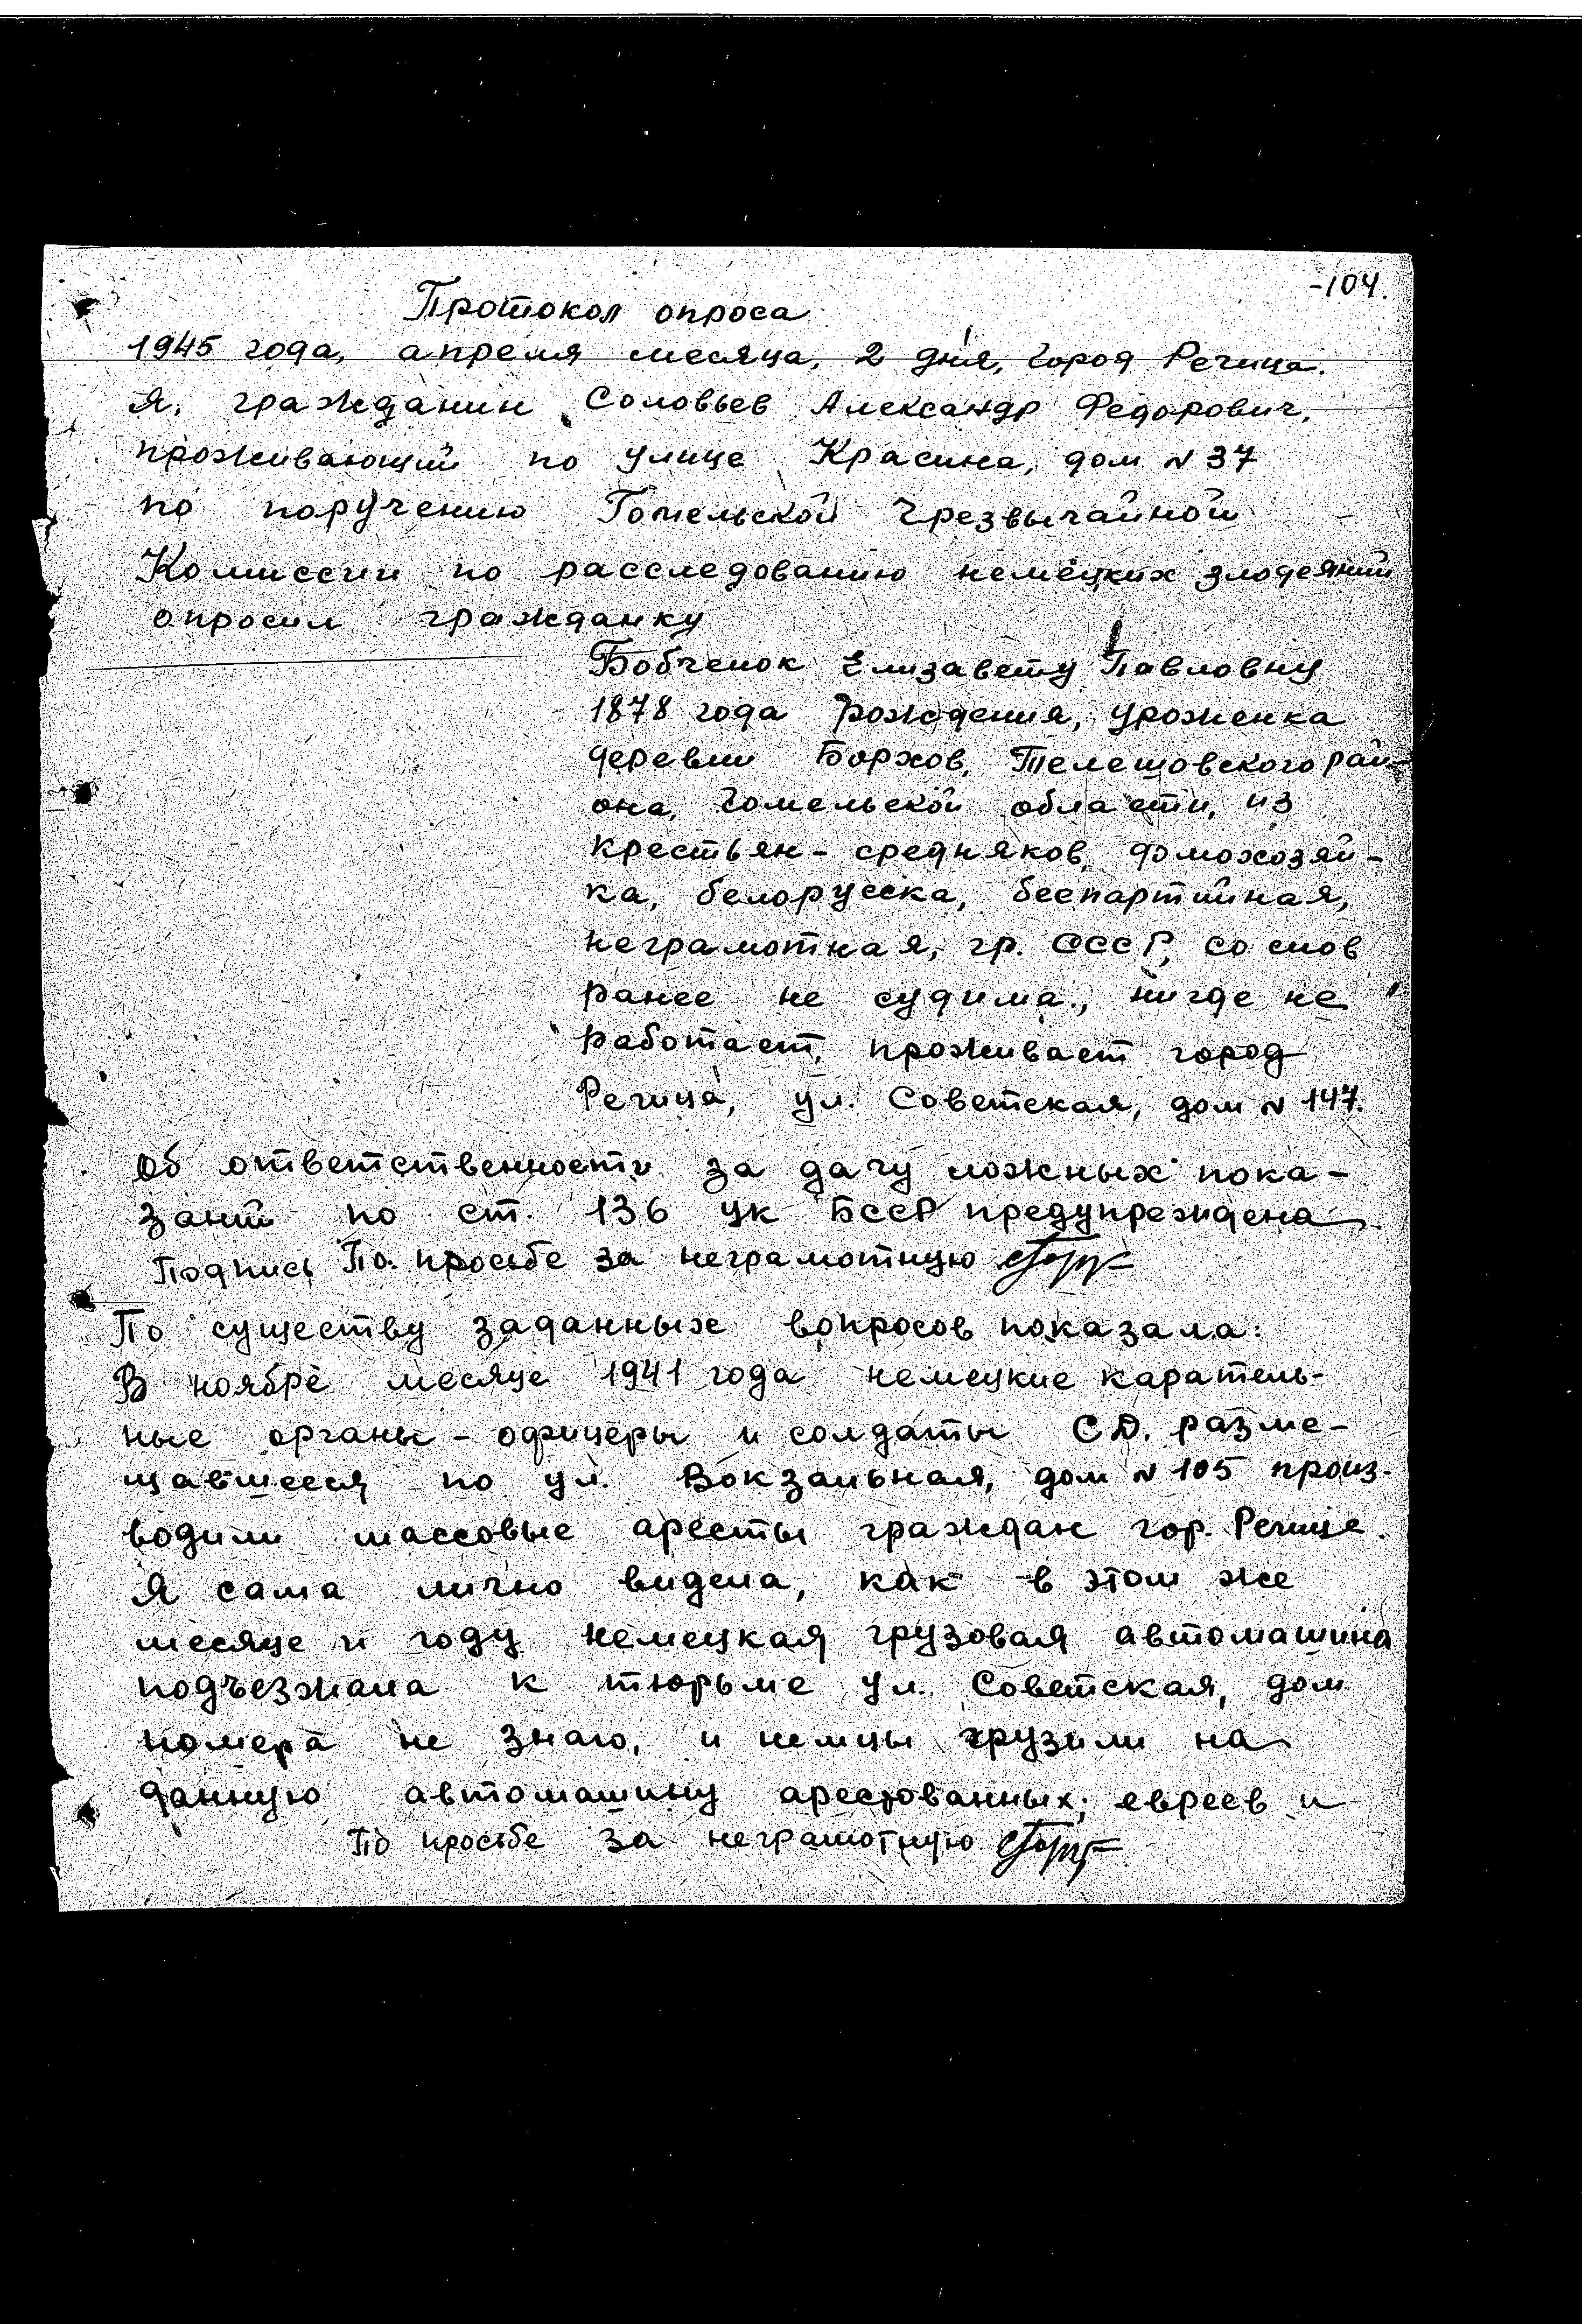 -104.
Протокол опроса
1945 года, апреля месяца, 2 дня, город Речица.
Я, гражданин Соловьев Александр Федорович,
проживающий по улице Красина, дом N 37
по поручению Гомельской Чрезвычайной
Комиссии по расследованию немецких злодеяний
опросил гражданку
Бобченок Елизавету Павловну
1878 года рождения, уроженка
деревни Борхов, Телешовского рай-
она, Гомельской области, из
крестьян-средняков, домохозяй-
ка, белорусска, беспартийная,
неграмотная, гр. СССР, со слов
ранее не судима, нигде не
работает, проживает город
Речица, ул. Советская, дом N 147.
Об ответственности за дачу ложных пока-
заний по ст. 136 УК БССР предупреждена
Подпись По просьбе за неграмотную
По существу заданных вопросов показала:
В ноябре месяце 1941 года немецкие каратель-
ные органы - офицеры и солдаты СД. разме-
щавшееся по ул. Вокзальная, дом N 105 произ-
водили массовые аресты граждан гор. Речице.
Я сама лично видела, как в этом же
месяце и году немецкая грузовая автомашина
подъезжала к тюрьме ул. Советская, дом
номера не знаю, и немцы грузили на
данную автомашину арестованных; евреев и
По просьбе за неграмотную